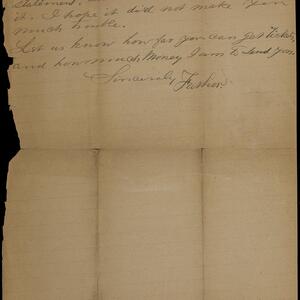 Statement.
it. I hope it did not make you
much trouble.
Let us know how far you can get Tickets
and how much Money I am to send you.
Sincerely Father.